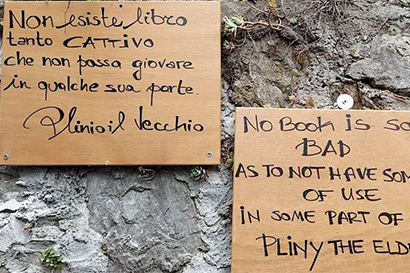 Non esiste libro
tanto CATTIVO
che non possa giovare
in qualche sua parte.
Plinio il Vecchio
No Book is so
BAD
AS TO NOT HAVE
OF USE
IN SOME PART OF
PLINY THE